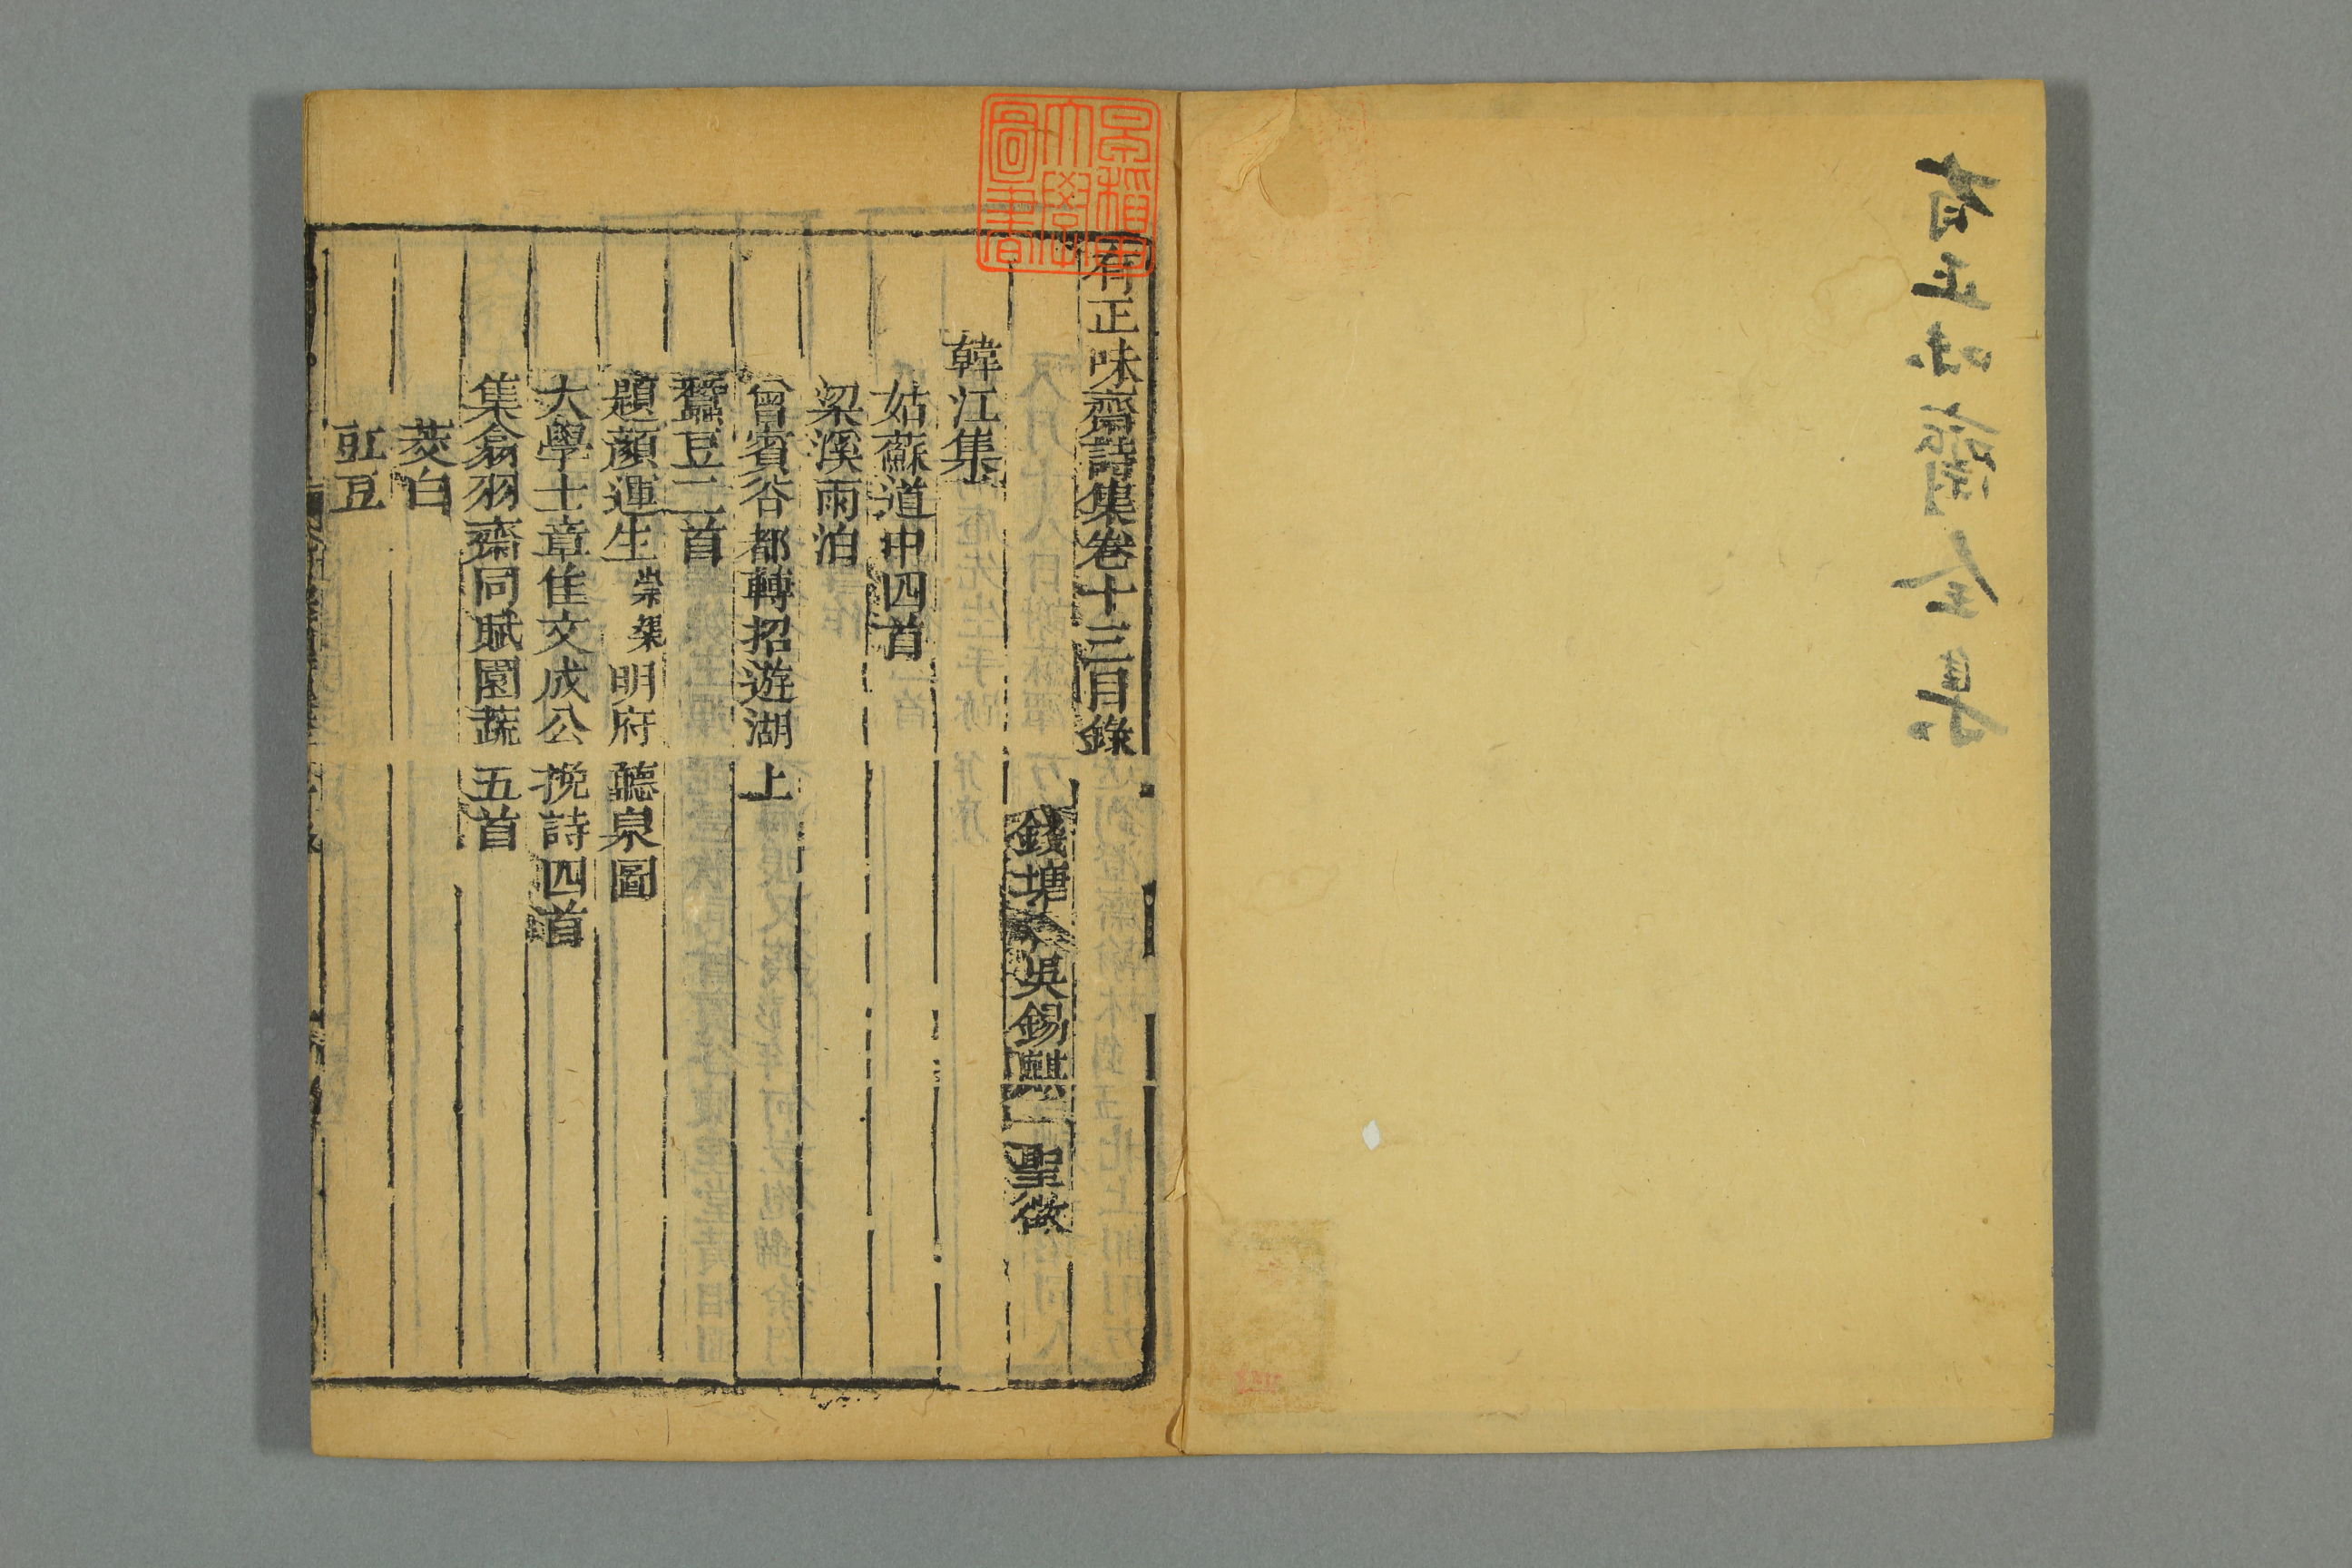 有正味齋全集
早稻田大學圖書
有正味齋詩集卷十三目錄
錢塘 吳錫麒 聖徵
韓江集
姑蘇道中四首
梁溪雨泊
曾賓谷都轉招遊湖上
蠶豆二首
題顏運生崇槼明府聽泉圖
大學士章佳文成公挽詩四首
集翕羽齋同賦園蔬五首
茭白
豇豆